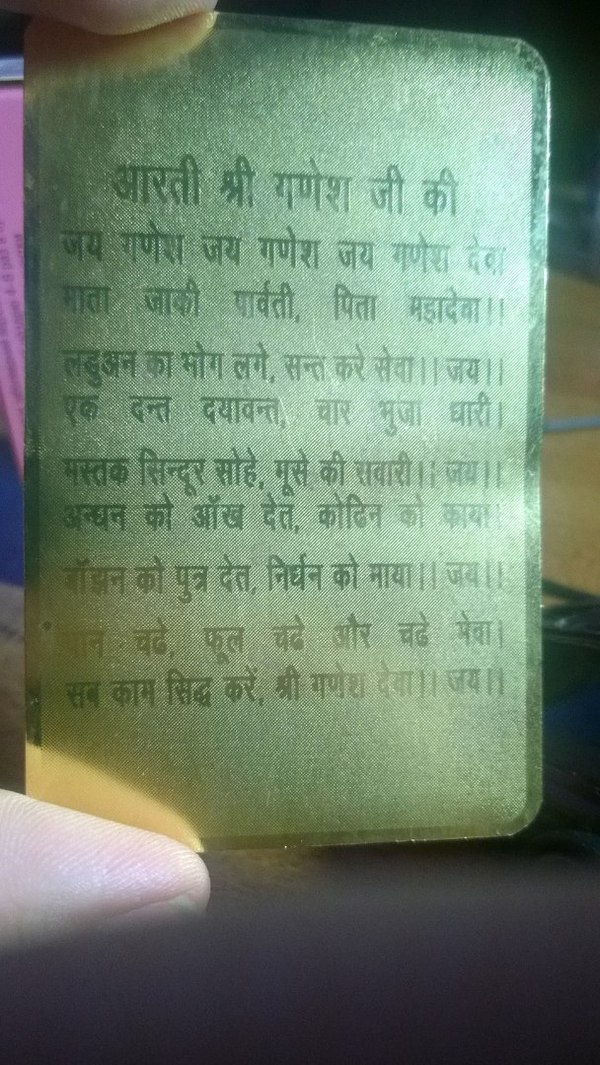 आरती श्री गणेश जी की
जय गणेश जय गणेश जय गणेश देवा
माता जाकी पार्वती, पिता महादेवा।।
लड्डुअन का भोग लगे, सन्त करे सेवा।। जय।।
एक दन्त दयावन्त, चार भुजा धारी।
मस्तक सिन्दूर सोहे, मूसे की सवारी।। जय।।
अन्धन को आँख देत, कोढिन को काया।
बाँझन को पुत्र देत, निर्धन को माया।। जय।।
पान चढे, फूल चढे और चढे मेवा।
सब काम सिद्ध करें, श्री गणेश देवा।। जय।।